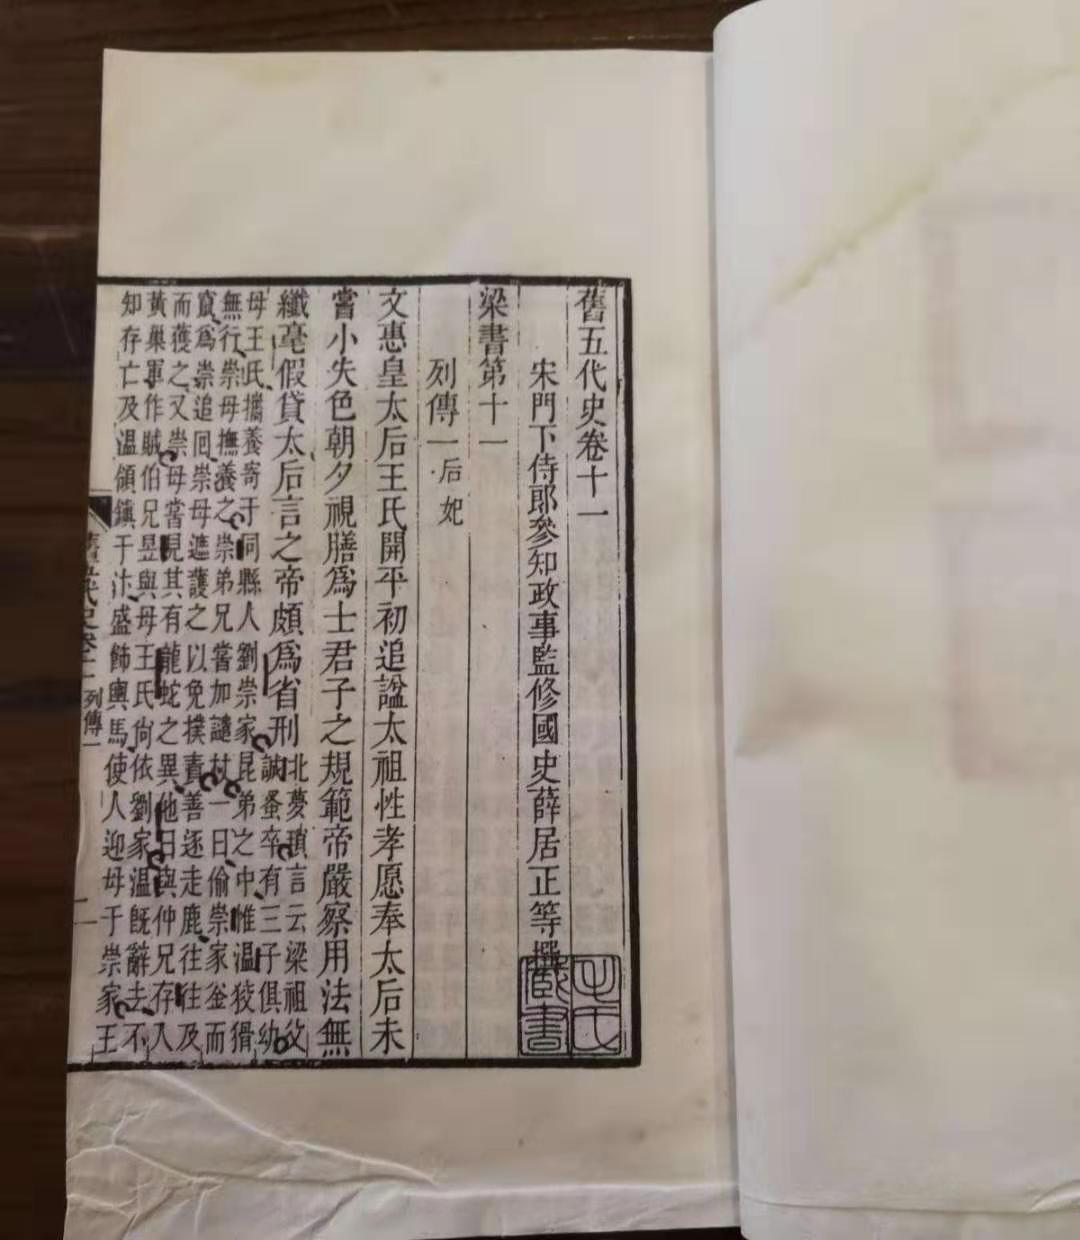 舊五代史卷十一
宋門下侍郎參知政事監修國史薛居正等撰
氏
藏書
梁書第十一
列傳一 后妃
文惠皇太后王氏開平初追諡太祖性孝愿奉太后未
嘗小失色朝夕視膳爲士君子之規範帝嚴察用法無
纖毫假貸太后言之帝頗爲省刑 北夢瑣言云梁祖父
誠蚤卒有三子俱幼
母王氏攜養寄于同縣人劉崇家昆弟之中惟温狡猾
無行崇母撫養之崇弟兄嘗加譴杖一日偷崇家釜而
竄爲崇追回崇母遮護之以免撲責善逐走鹿往往及
而獲之又崇母嘗見其有龍蛇之異他日與仲兄存入
黃巢軍作賊伯兄昱與母王氏尚依劉家温旣辭去不
知存亡及温領鎮于汴盛飾輿馬使人迎母于崇家王
舊五代史卷十一 列傳一
一